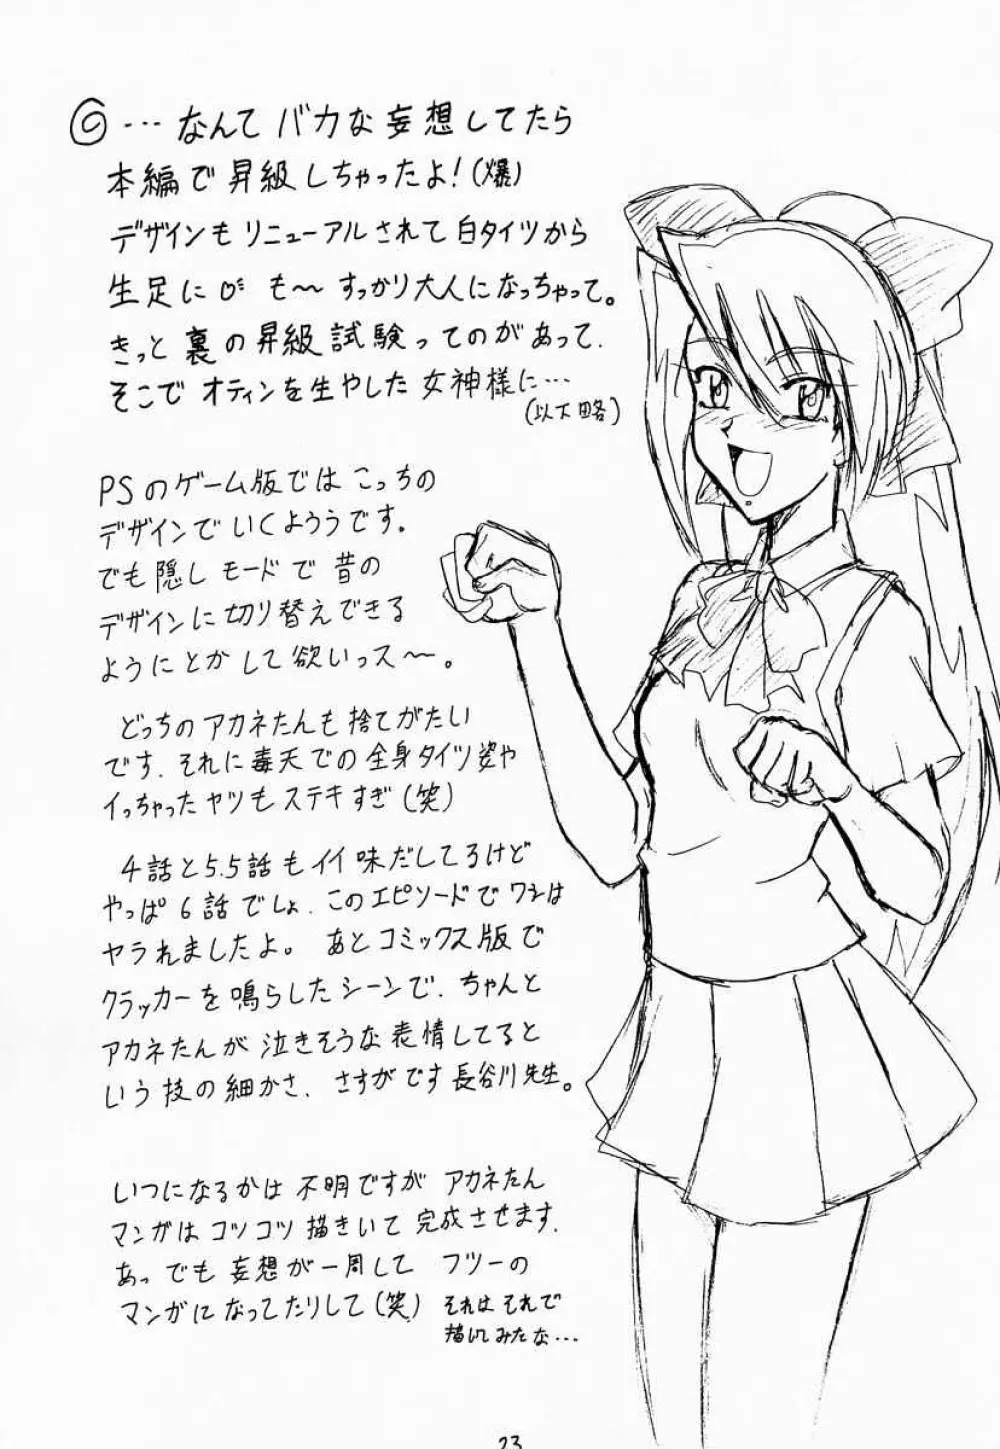 ◎…なんてバカな妄想してたら
本編で昇級しちゃったよ!(爆)
デザインもリニューアルされて白タイツから
生足に も～すっかり大人になっちゃって。
きっと裏の昇級試験ってのがあって、
そこでオティンを生やした女神様に…
(以下略)
PSのゲーム版ではこっちの
デザインでいくよううです。
でも隠しモードで昔の
デザインに切り替えできる
ようにとかして欲いっス～。
どっちのアカネたんも捨てがたい
です、それに毒天での全身タイツ姿や
イっちゃったヤツもステキすぎ(笑)
4話と5.5話もイイ味だしてるけど
やっぱ6話でしょ、このエピソードでワシは
ヤラれましたよ。あとコミックス版で
クラッカーを鳴らしたシーンで、ちゃんと
アカネたんが泣きそうな表情してると
いう技の細かさ、さすがです長谷川先生。
いつになるかは不明ですがアカネたん
マンガはコツコツ描きいて完成させます、
あっでも妄想が一周してフツーの
マンガになってたりして(笑) それはそれで
描いてみたな…
23